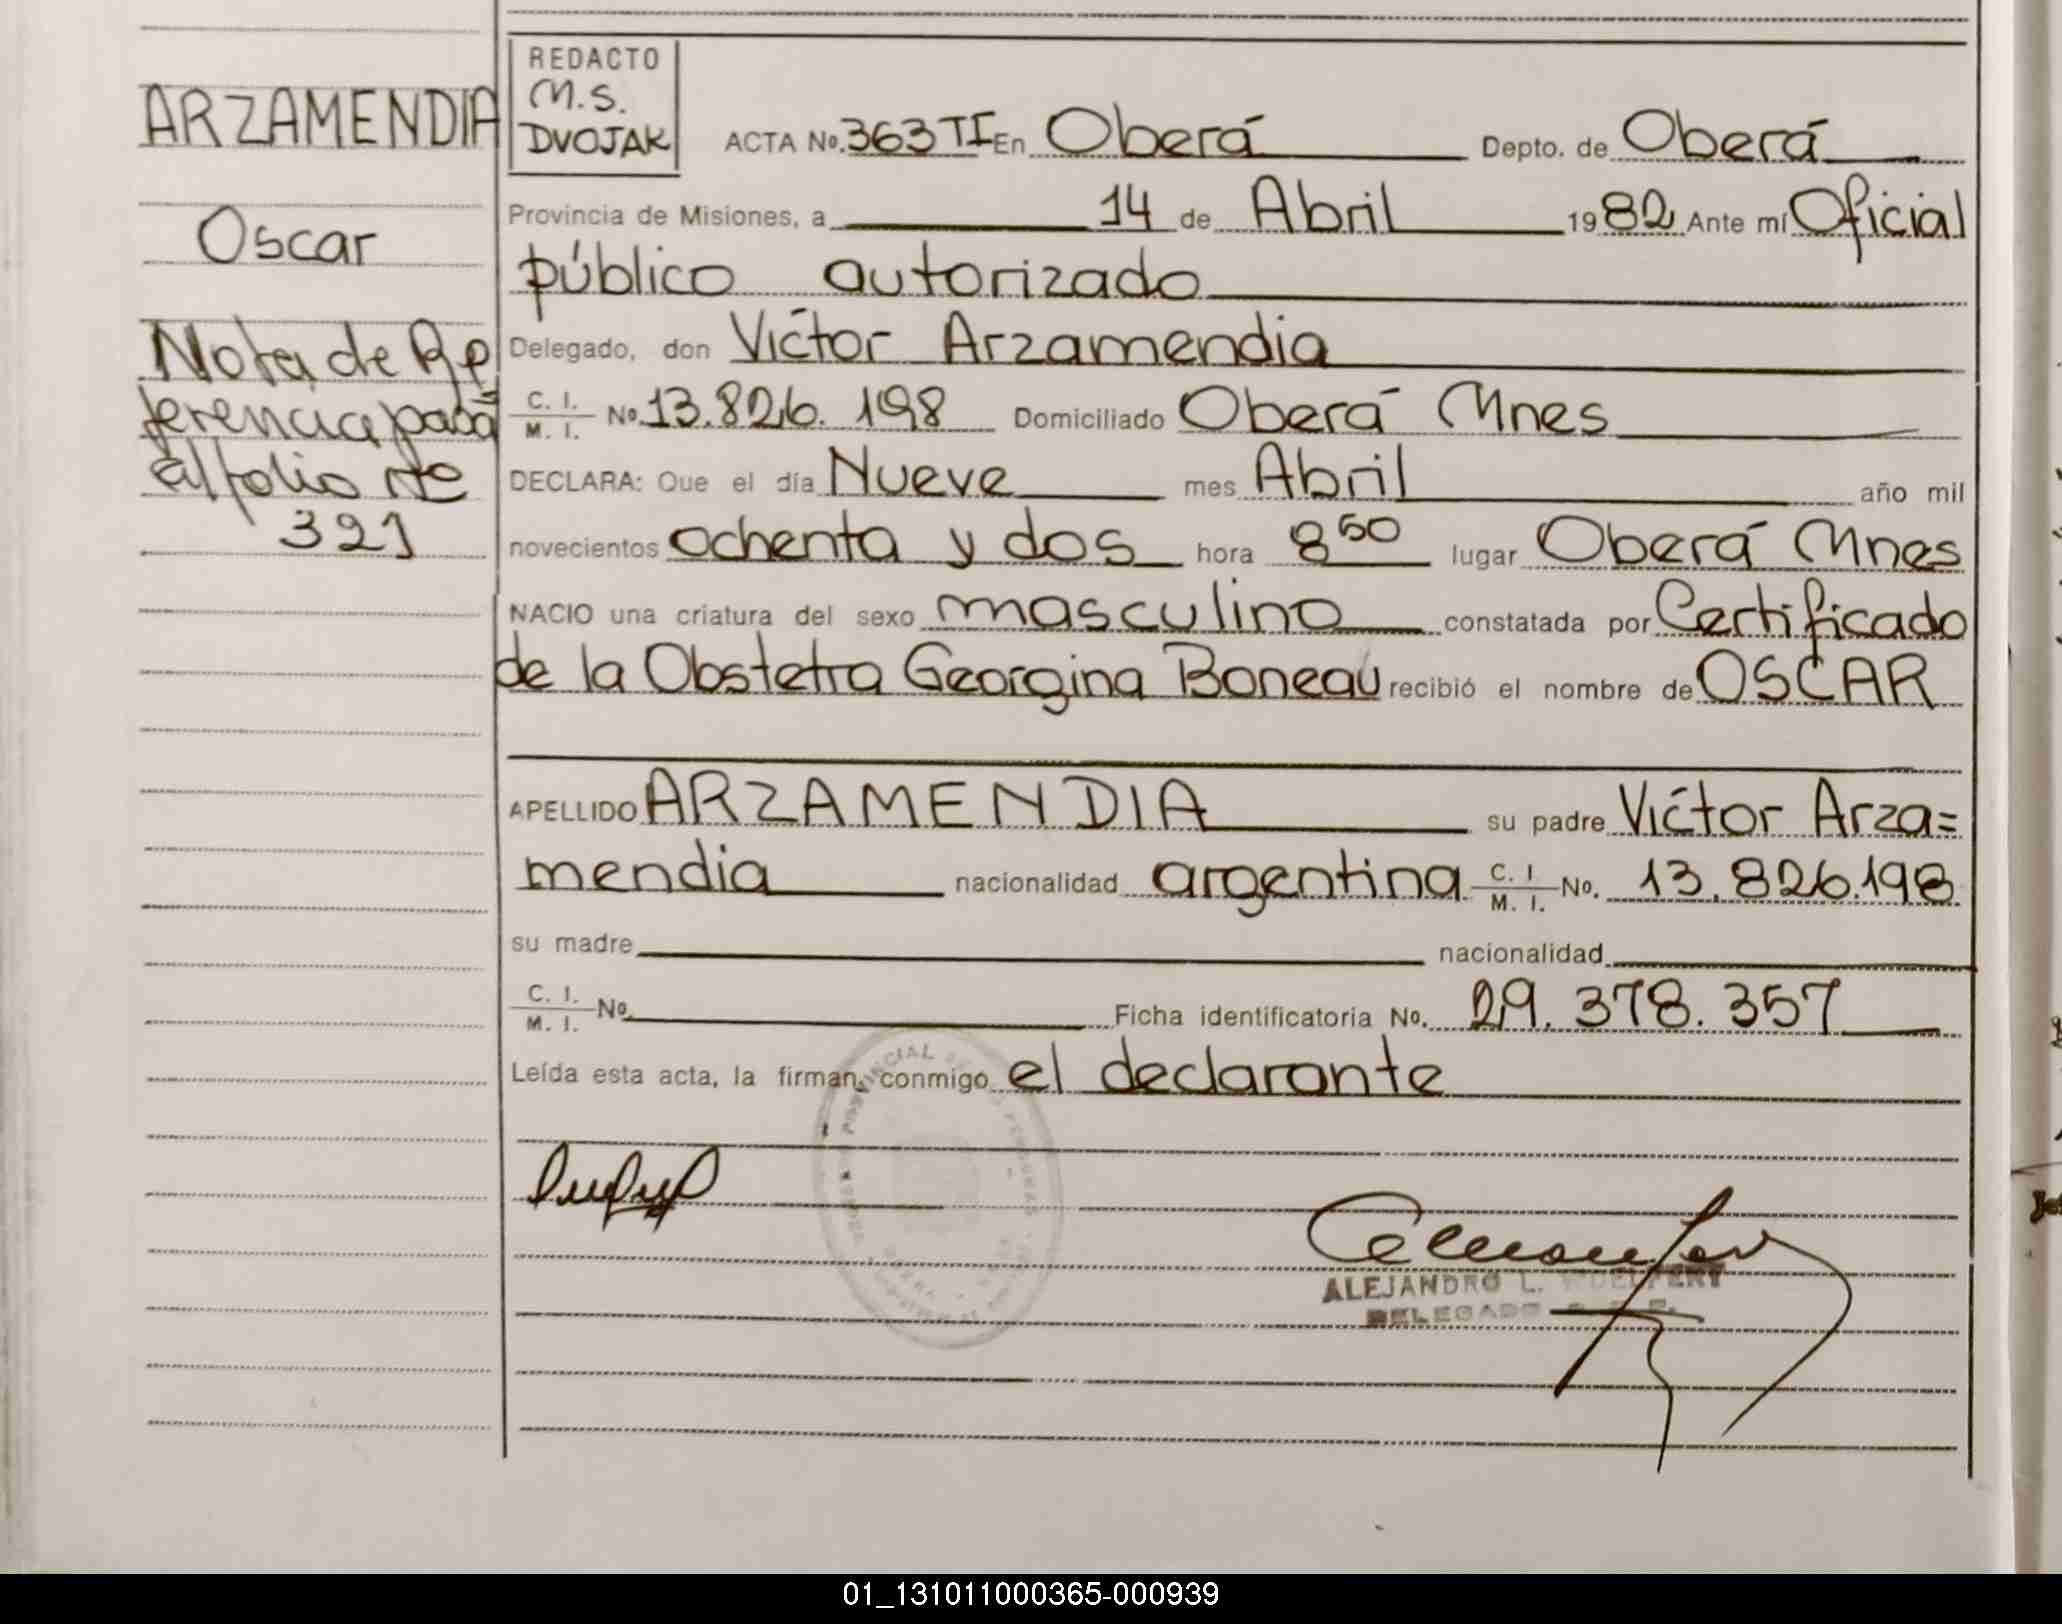 ARZAMENDIA
Oscar
Nota de Re
ferencia pasa
al folio Nº
321
REDACTO
M.S.
DVOJAK
ACTA No. 363 TI En Oberá Depto. de Oberá
Provincia de Misiones, a 14 de Abril 1982 Ante mí Oficial
público autorizado
Delegado, don Víctor Arzamendia
C. I. / M. I. No. 13.826.198 Domiciliado Oberá Mnes
DECLARA: Que el día Nueve mes Abril año mil
novecientos ochenta y dos hora 8 50 lugar Oberá Mnes
NACIO una criatura del sexo masculino constatada por Certificado
de la Obstetra Georgina Boneau recibió el nombre de OSCAR
APELLIDO ARZAMENDIA su padre Víctor Arza=
mendia nacionalidad argentina C. I / M. I. No. 13.826.198
su madre nacionalidad
C. I. / M. I. No. Ficha identificatoria No. 29.378.357
Leída esta acta, la firman conmigo el declarante
ALEJANDRO L.
DELEGADO
01_131011000365-000939